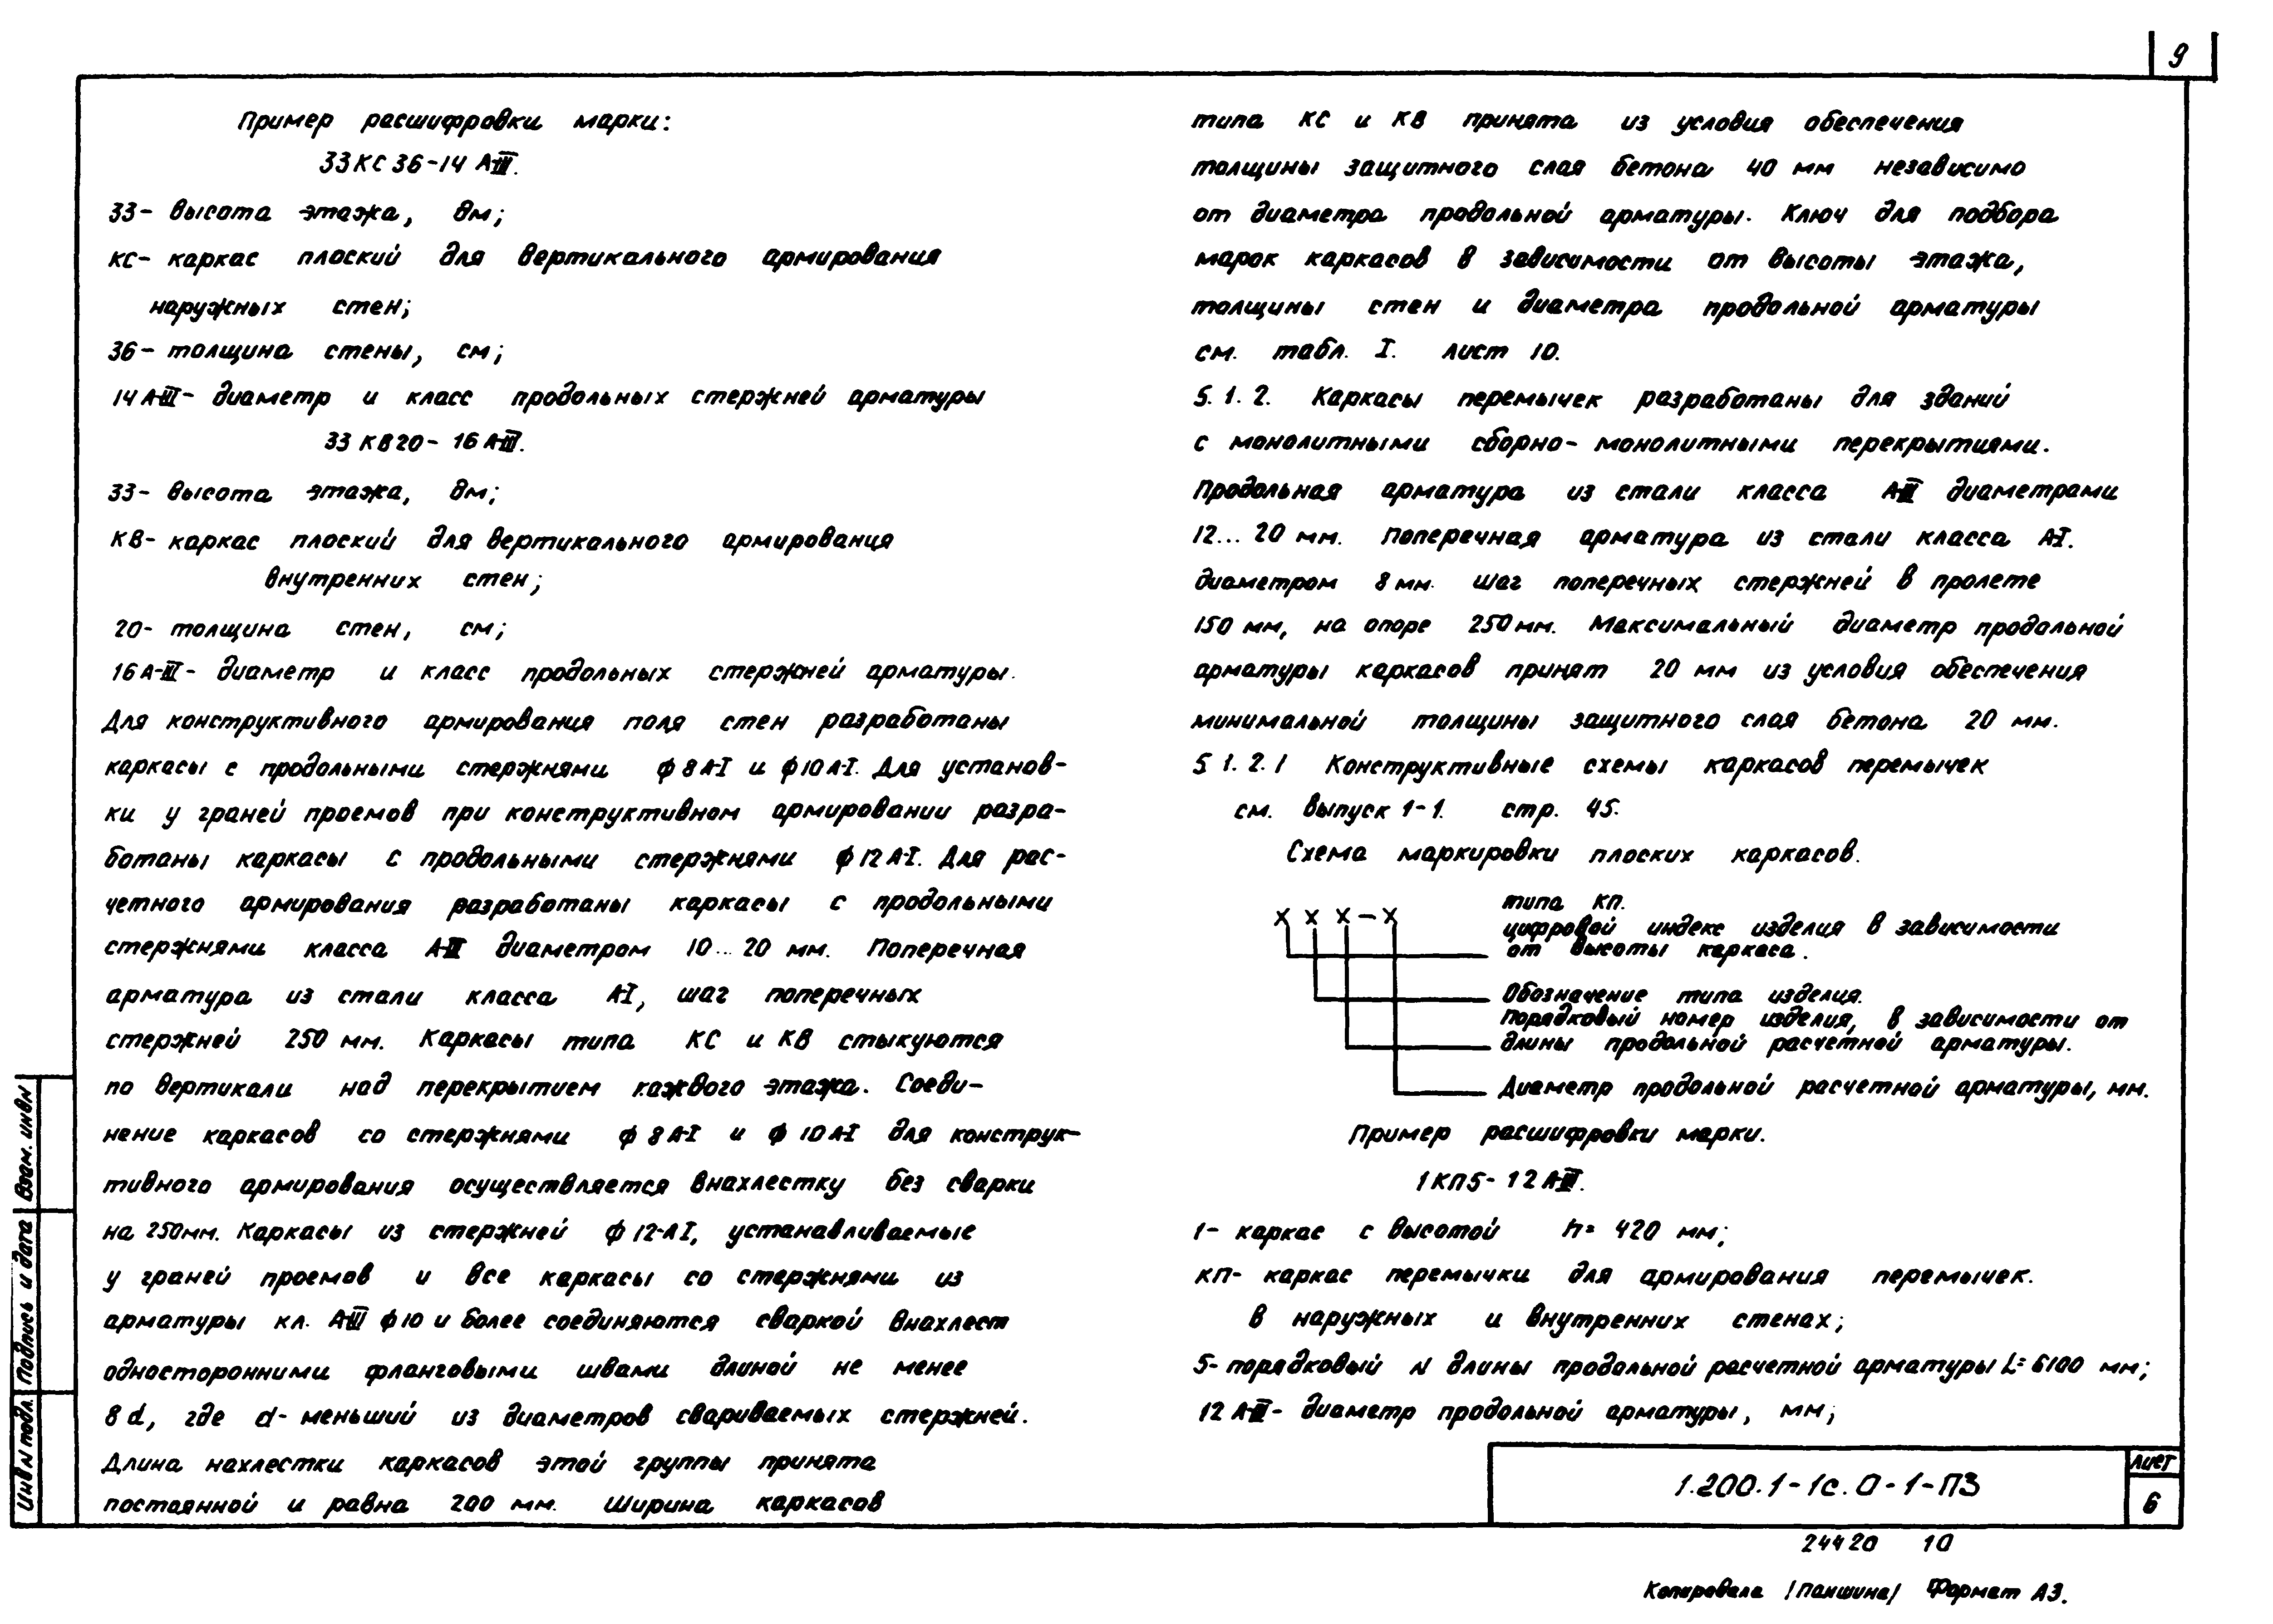 9
Пример расшифровки марки:
33КС36-14 А-III.
33- высота этажа, дм;
КС- каркас плоский для вертикального армирования
наружных стен;
36- толщина стены, см;
14А-III- диаметр и класс продольных стержней арматуры
33 КВ20- 16А-III.
33- высота этажа, дм;
КВ- каркас плоский для вертикального армирования
внутренних стен;
20- толщина стен, см;
16А-III- диаметр и класс продольных стержней арматуры.
Для конструктивного армирования поля стен разработаны
каркасы с продольными стержнями ϕ8А-I и ϕ10А-I. Для установ-
ки у граней проемов при конструктивном армировании разра-
ботаны каркасы с продольными стержнями ϕ12А-I. Для рас-
четного армирования разработаны каркасы с продольными
стержнями класса А-III диаметром 10...20 мм. Поперечная
арматура из стали класса А-I, шаг поперечных
стержней 250 мм. Каркасы типа КС и КВ стыкуются
по вертикали над перекрытием каждого этажа. Соеди-
нение каркасов со стержнями ϕ8А-I и ϕ10А-I для конструк-
тивного армирования осуществляется внахлестку без сварки
на 250мм. Каркасы из стержней ϕ12-АI, устанавливаемые
у граней проемов и все каркасы со стержнями из
арматуры кл. А-III ϕ10 и более соединяются сваркой внахлест
односторонними фланговыми швами длиной не менее
8d, где d- меньший из диаметров свариваемых стержней.
Длина нахлестки каркасов этой группы принята
постоянной и равна 200 мм. Ширина каркасов
типа КС и КВ принята из условия обеспечения
толщины защитного слоя бетона 40 мм независимо
от диаметра продольной арматуры. Ключ для подбора
марок каркасов в зависимости от высоты этажа,
толщины стен и диаметра продольной арматуры
см. табл. I. Лист 10.
5.1.2. Каркасы перемычек разработаны для зданий
с монолитными сборно- монолитными перекрытиями.
Продольная арматура из стали класса А-III диаметрами
12...20 мм. Поперечная арматура из стали класса А-I.
диаметром 8мм. шаг поперечных стержней в пролете
150 мм, на опоре 250мм. Максимальный диаметр продольной
арматуры каркасов принят 20 мм из условия обеспечения
минимальной толщины защитного слоя бетона 20 мм.
5 1.2.1 Конструктивные схемы каркасов перемычек
см. выпуск 1-1. стр. 45.
Схема маркировки плоских каркасов.
типа КП.
Х Х Х-Х
цифровой индекс изделия в зависимости
от высоты каркаса.
Обозначение типа изделия.
Порядковый номер изделия, в зависимости от
длины продольной расчетной арматуры.
Диаметр продольной расчетной арматуры, мм.
Пример расшифровки марки.
1КП5- 12А-III.
1- каркас с высотой h= 420 мм;
КП- каркас перемычки для армирования перемычек.
в наружных и внутренних стенах;
5- порядковый N длины продольной расчетной арматуры L= 6100 мм;
12А-III- диаметр продольной арматуры, мм;
Инв N подл. Подпись и дата Взам. инв N
1.200.1-1с.0-1-ПЗ
Лист
6
24420 10
Копировала /Паншина/ Формат А3.